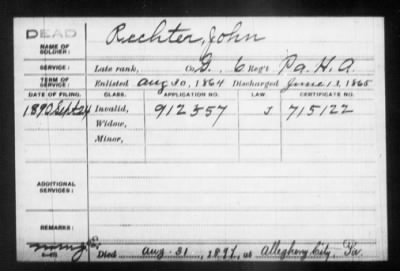 DEAD
NAME OF SOLDIER: Rechter, John
SERVICE: Late rank, Co. G. 6 Reg't Pa. H. A.
TERM OF SERVICE: Enlisted Aug 30, 1864 Discharged June 13, 1865
DATE OF FILING. CLASS. APPLICATION NO. LAW. CERTIFICATE NO.
1890 Sept 24 Invalid, 912357 J 715122
Widow,
Minor,
ADDITIONAL SERVICES:
REMARKS:
Died Aug. 31, 1897, at Allegheny City, Pa.